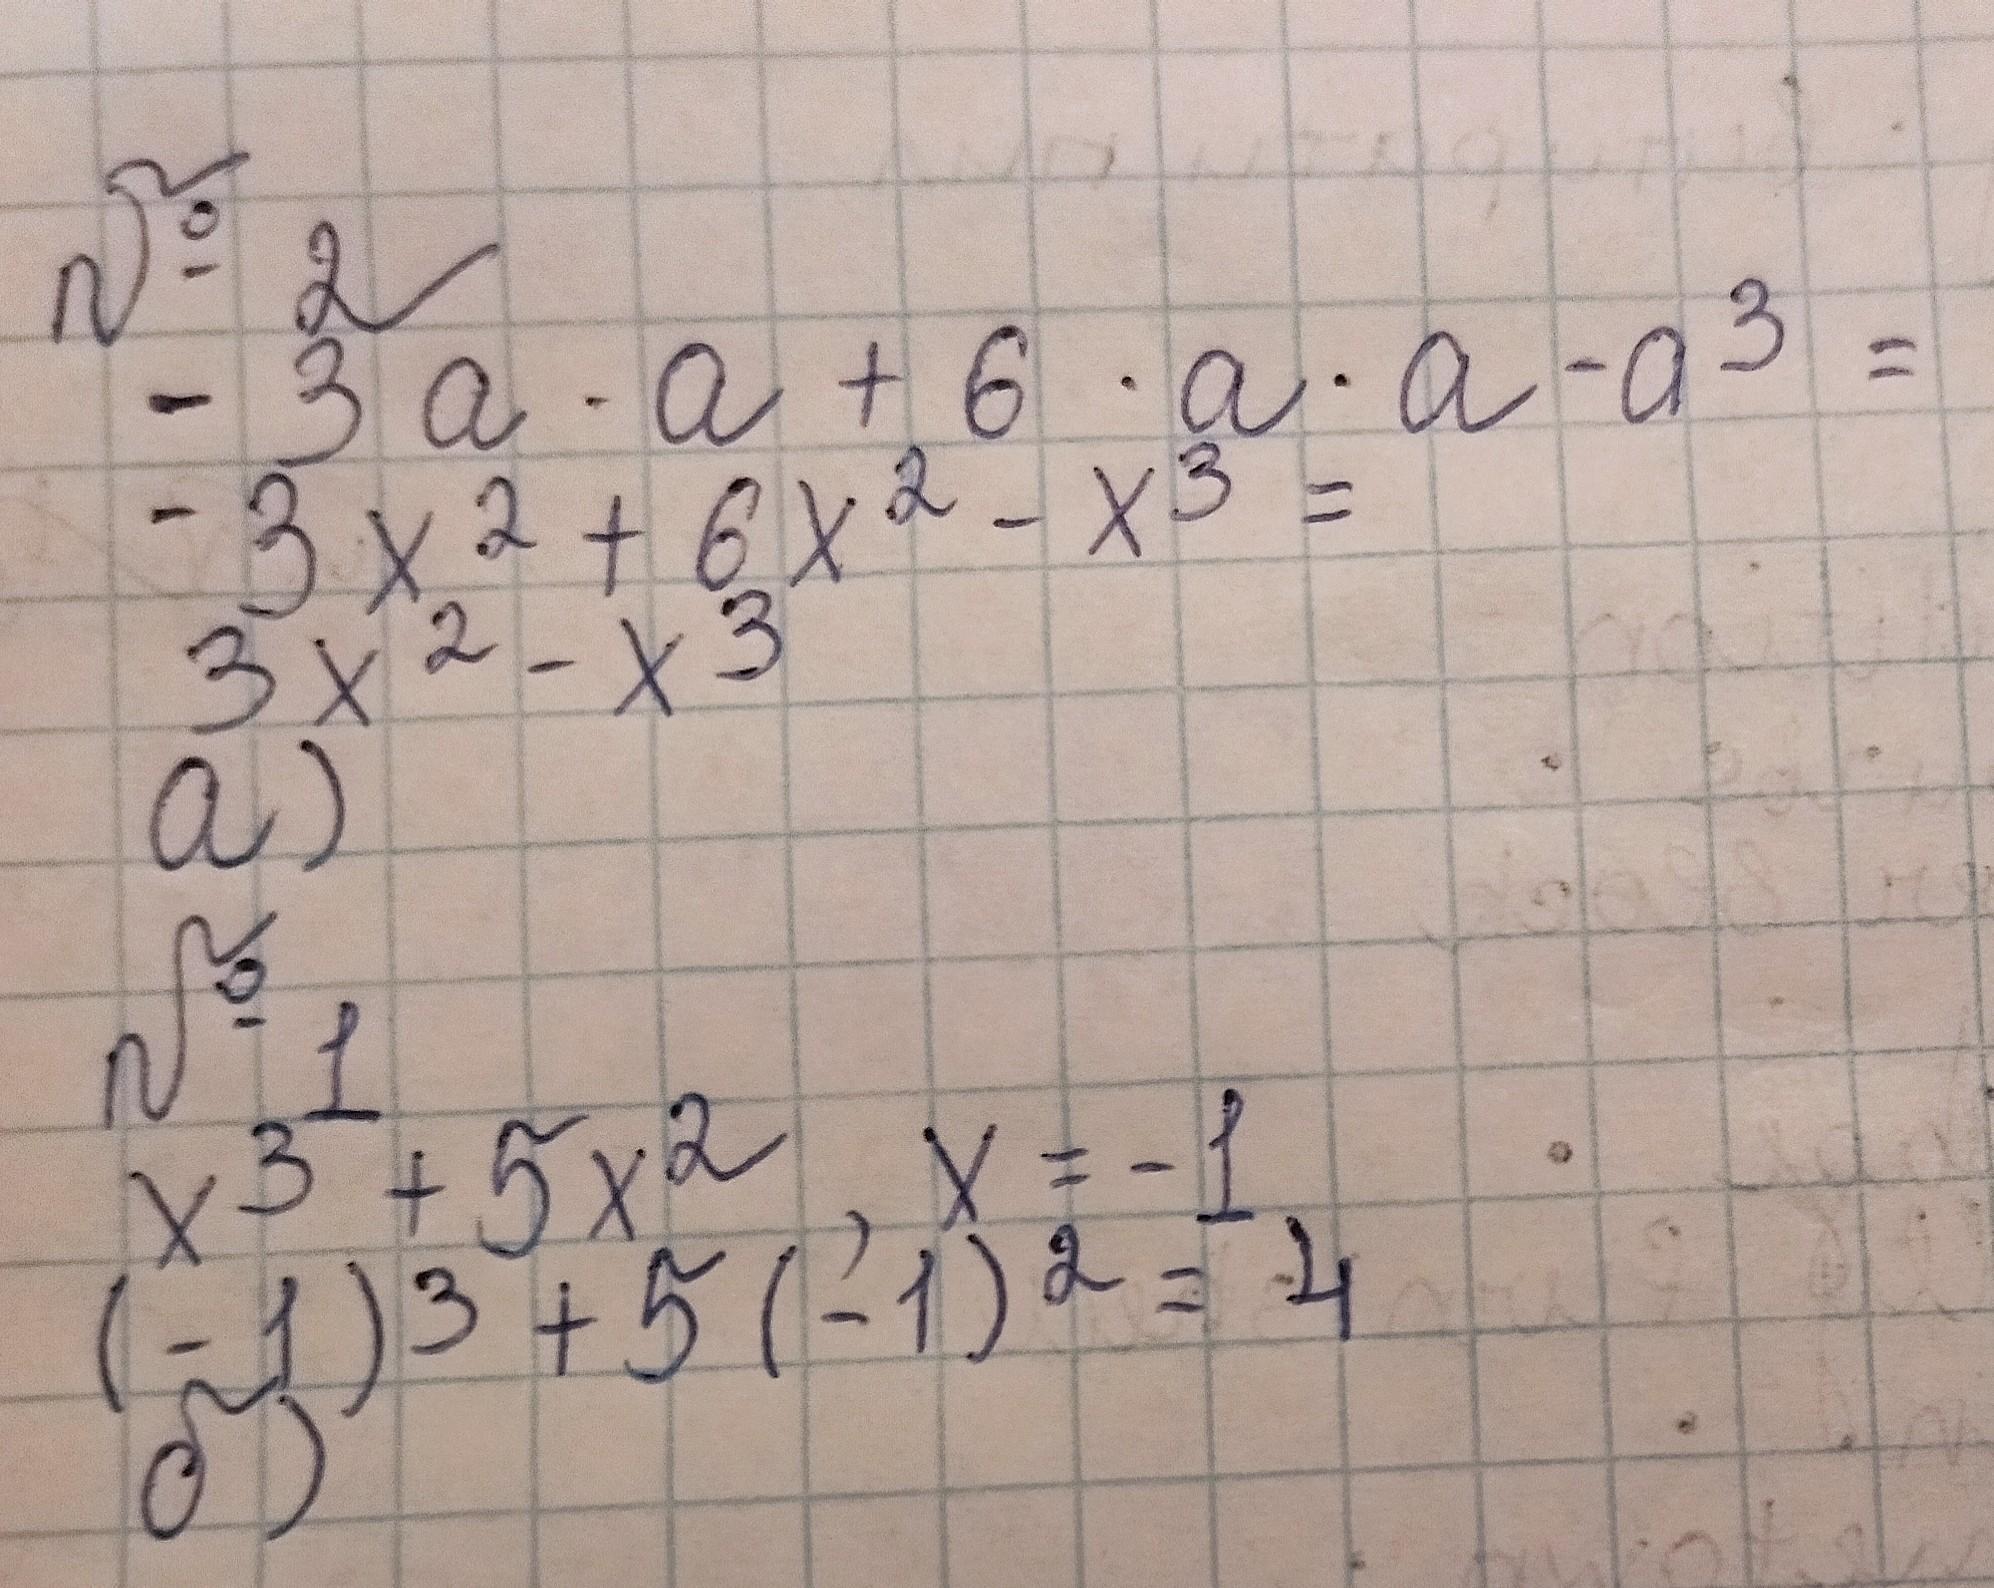 № 2
- 3a · a + 6 · a · a - a³ =
- 3x² + 6x² - x³ =
3x² - x³
а)
№ 1
x³ + 5x², x = -1
(-1)³ + 5(-1)² = 4
б)